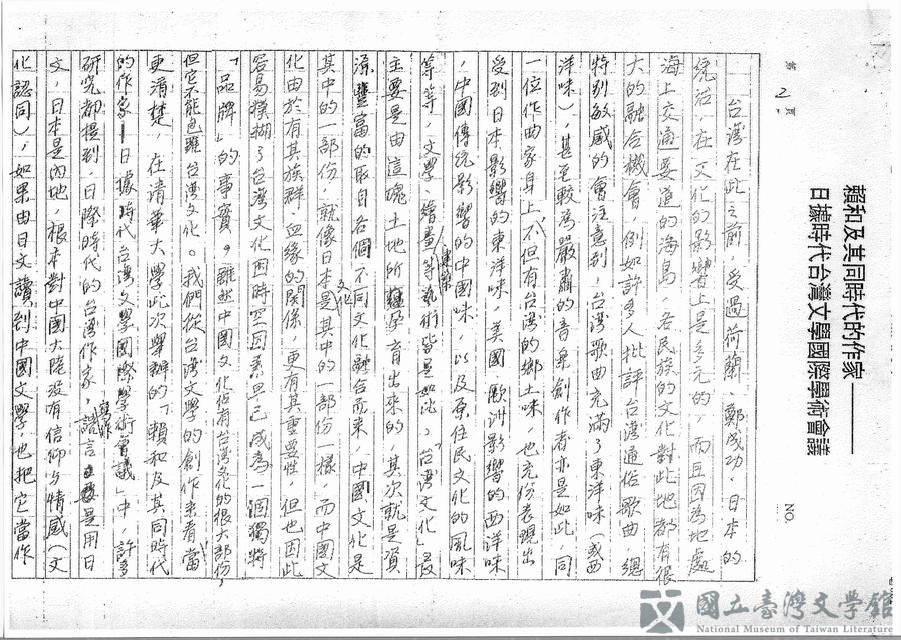 賴和及其同時代的作家——
日據時代台灣文學國際學術會議
第 2 頁
NO.
台灣在此之前,受過荷蘭、鄭成功、日本的
統治,在文化的影響上是多元的,而且因為地處
海上交通要道的海島,各民族的文化對此地都有很
大的融合機會,例如許多人批評台灣通俗歌曲,總
特別敏感的會注意到,台灣歌曲充滿了東洋味(或西
洋味),甚至較為嚴肅的音樂創作者亦是如此,同
一位作曲家身上,不但有台灣的鄉土味,也充份表現出
受到日本影響的東洋味,美國、歐洲影響的西洋味
,中國傳統影響的中國味,以及原住民文化的風味
等等,文學、繪畫、建築等藝術皆是如此。「台灣文化」最
主要是由這塊土地所孕育出來的,其次就是資
源豐富的取自各個不同文化融合而來,中國文化是
其中的一部份,就像日本文化是其中的一部份一樣,而中國文
化由於有其族群、血緣的關係,更有其重要性,但也因此
容易模糊了台灣文化因時空因素早已成為一個獨特
「品牌」的事實。雖然中國文化佔有台灣文化的很大部份,
但它不能包羅台灣文化。我們從台灣文學的創作來看,當
更清楚,在清華大學此次舉辦的「賴和及其同時代
的作家—日據時代台灣文學國際學術會議」中,許多
研究都提到,日據時代的台灣作家,寫作語言是用日
文,日本是內地,根本對中國大陸沒有信仰與情感(文
化認同),如果由日文讀到中國文學,也把它當作
國立臺灣文學館
National Museum of Taiwan Literature